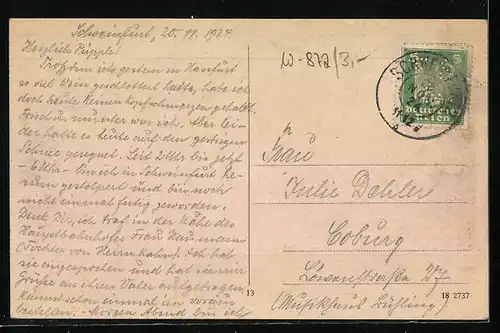 Schweinfurt, 20. 11. 1927
Herzliebs Püpple!
Trotzdem ich gestern in Hassfurt
so viel Wein geschlottert hatte, habe ich
doch heute keinen Kopfschmerzen gehabt.
Frisch u. munter war ich. Aber lei-
der hatte es heute auf den gestrigen
Schnee geregnet. Seit 2 Uhr bis jetzt
- 6 Uhr - bin ich in Schweinfurt he-
rum gestolpert und bin noch
nicht einmal fertig geworden.
Denk Dir, ich traf in der Nähe des
Hauptbahnhofes Frau Naumann
(Tochter von Herrn Hahn). Ich hab
sie angesprochen und hat sie mir
Grüße an ihren Vater aufgetragen
Kannst schon einmal im voraus
bestellen. - Morgen Abend bin ich
W-872/3,-
SCHWEINFURT
5
Deutsches
Reich
Frau
Julie Dehler
Coburg
Löwenstraße 27
(Musikhaus Lißling)
13
18 2737